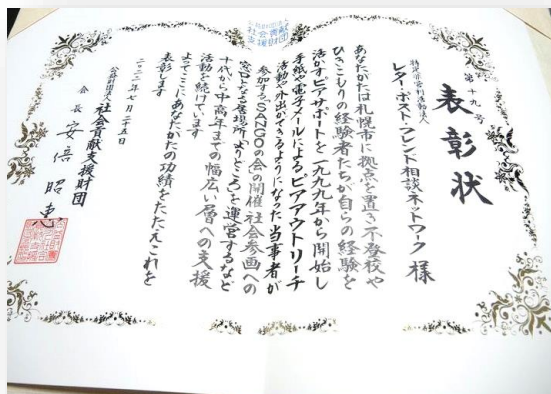 公益財団法人
社会貢献
支援財団
第十九号
表彰状
特定非営利活動法人
レター・ポスト・フレンド相談ネットワーク 様
あなたがたは札幌市に拠点を置き不登校や
ひきこもりの経験者たちが自らの経験を
活かすピアサポートを一九九九年から開始し
手紙や電子メールによるピアアウトリーチ
活動や外出ができるようになった当事者が
参加する「SANGOの会」の開催 社会参画への
窓口となる居場所「よりどころ」を運営するなど
十代から中高年までの幅広い層への支援
活動を続けています
よってここにあなたがたの功績をたたえこれを
表彰します
二〇二二年七月二十五日
公益財団法人 社会貢献支援財団
会長 安倍昭恵